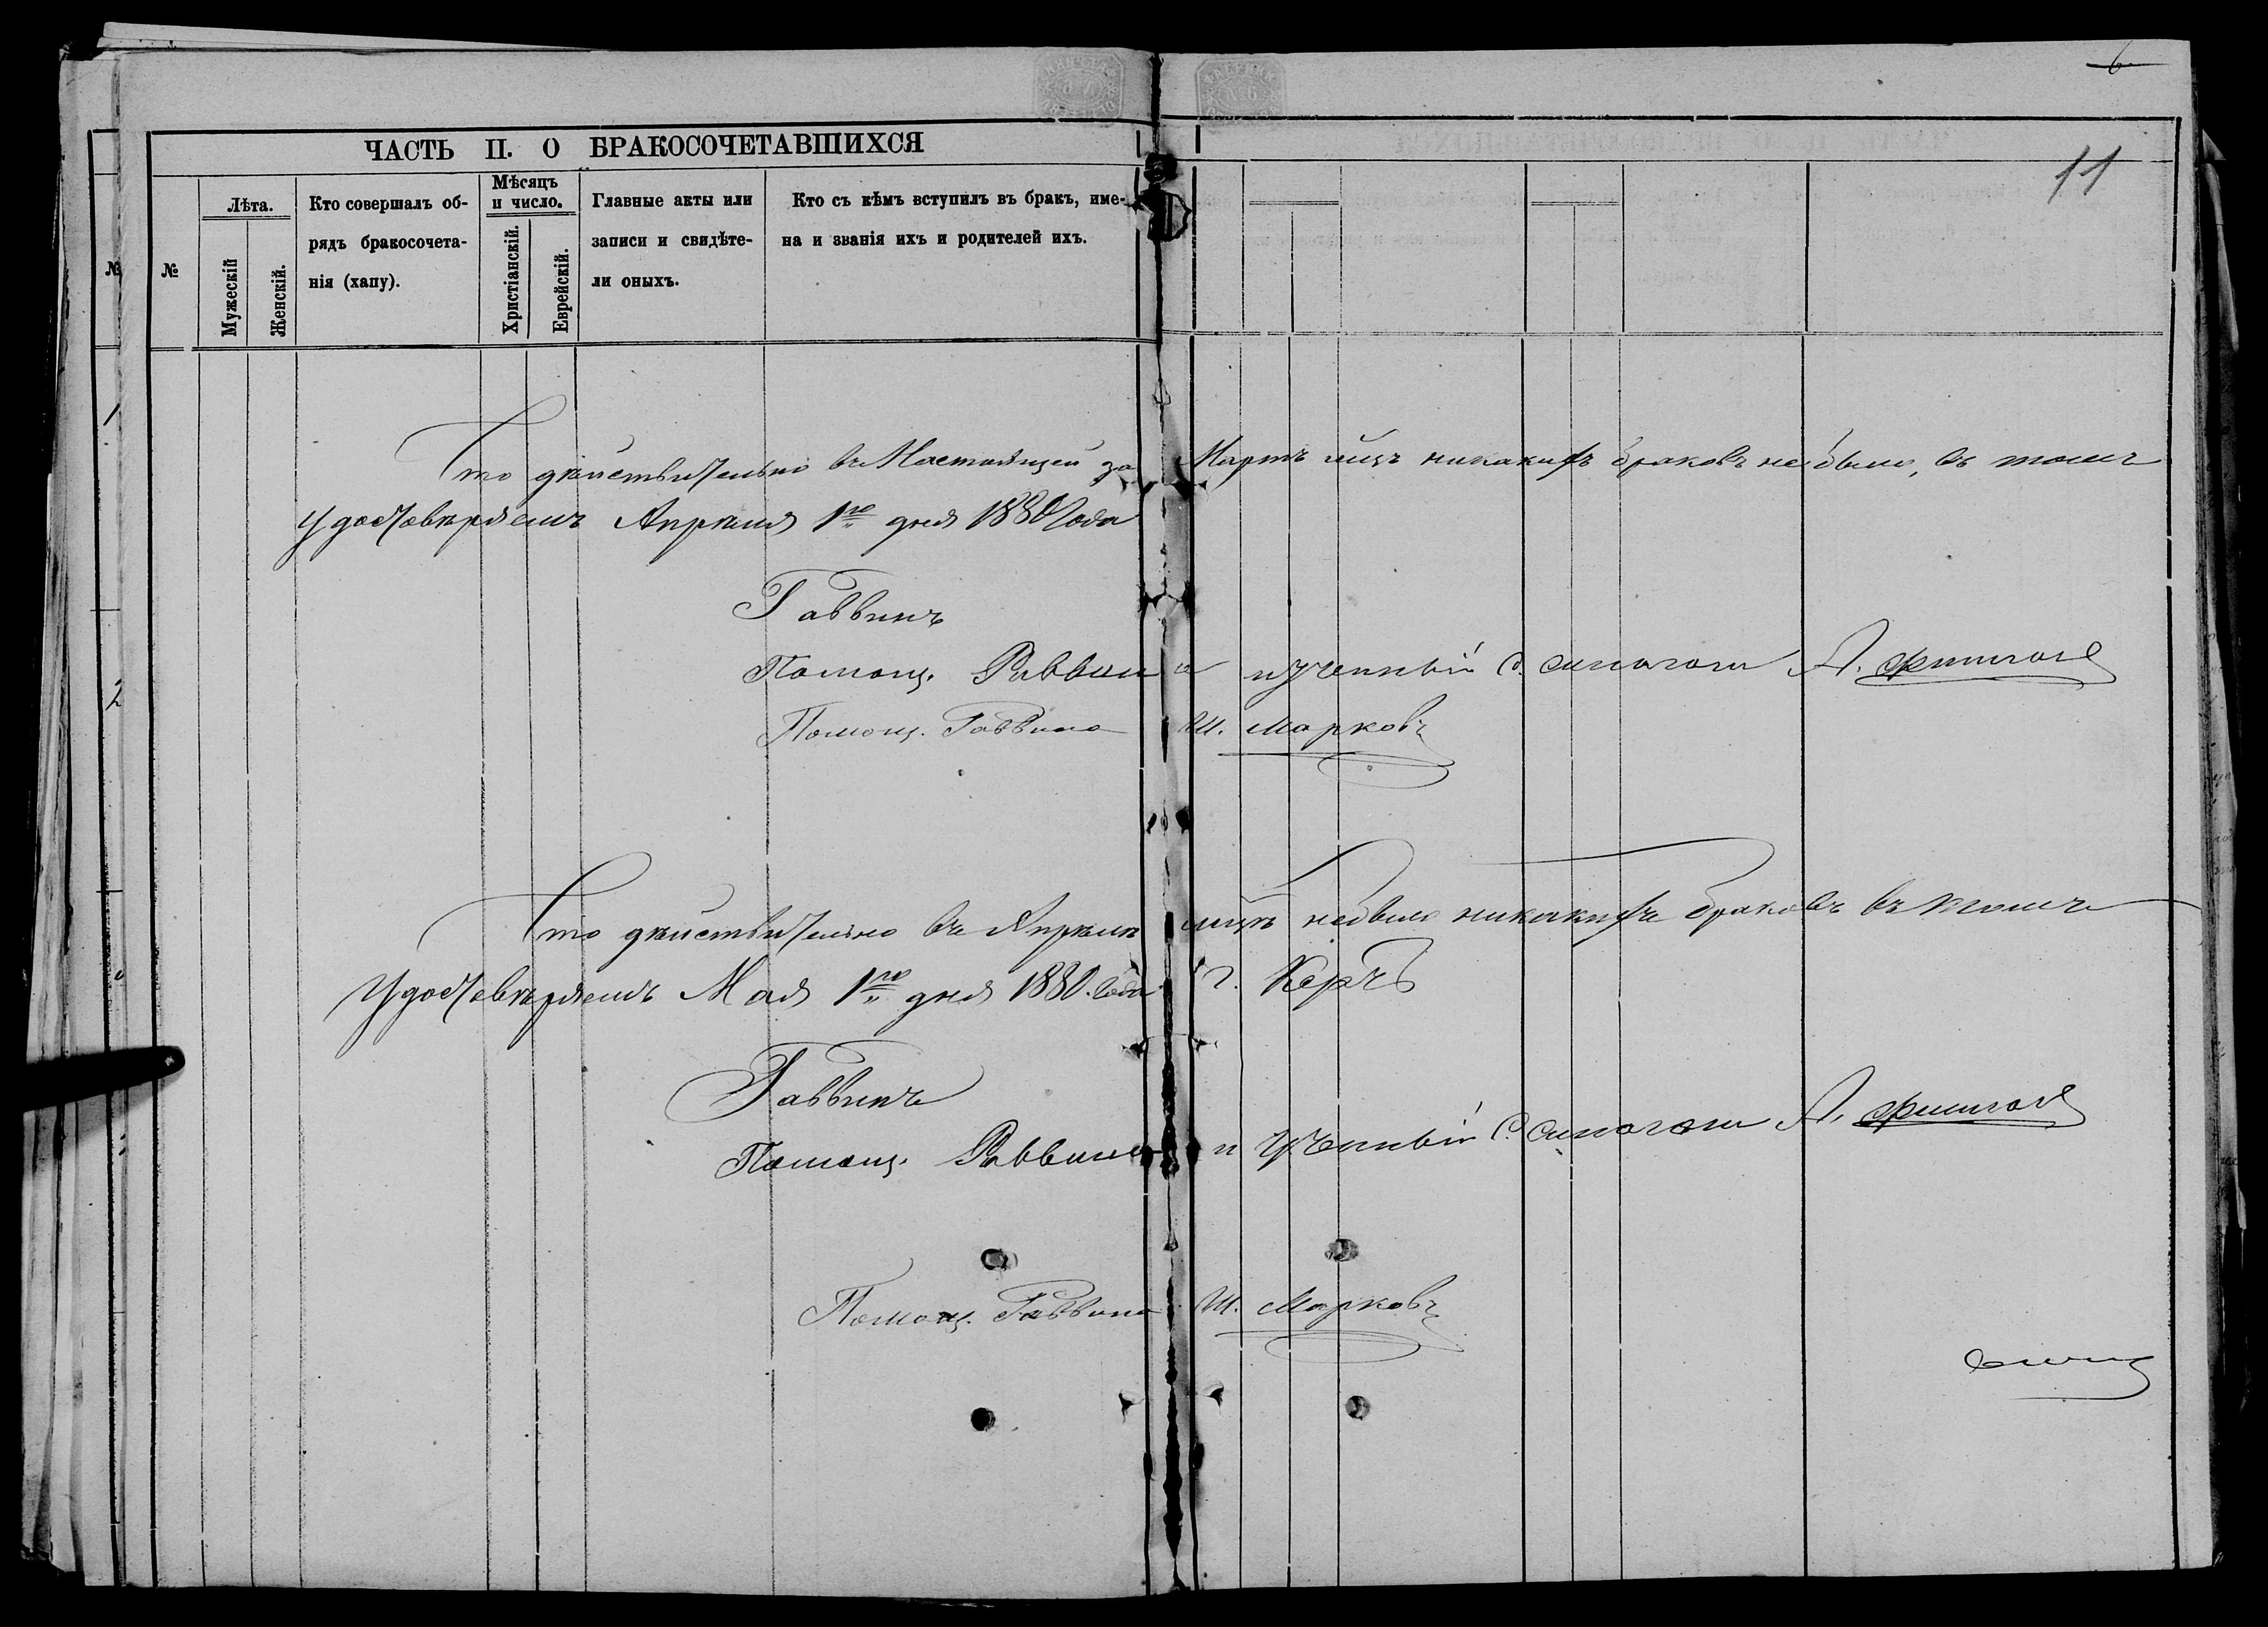 6
11
ЧАСТЬ II. О БРАКОСОЧЕТАВШИХСЯ
№
№
Лѣта.
Мужескій
Женскій.
Кто совершалъ об-
рядъ бракосочета-
нія (хапу).
Мѣсяцъ
и число.
Христіанскій.
Еврейскій.
Главные акты или
записи и свидѣте-
ли оныхъ.
Кто съ кѣмъ вступилъ въ бракъ, име-
на и званія ихъ и родителей ихъ.
1
2
Что дѣйствительно въ Настоящей за Мартъ мцъ никакихъ браковъ небыло, въ томъ
удостовѣряемъ Апрѣля 1го дня 1880 Года
Раввинъ
Помощ. Раввина и ученный С. синагоги А.
Помощ. Раввина Ш. Марковъ
Что дѣйствительно въ Апрѣлѣ мцѣ небыло никакихъ браковъ въ томъ
удостовѣряемъ Мая 1го дня 1880. Года г. Керчь
Раввинъ
Помощ. Раввина и Ученный С. синагоги А.
Помощ. Раввина Ш. Марковъ